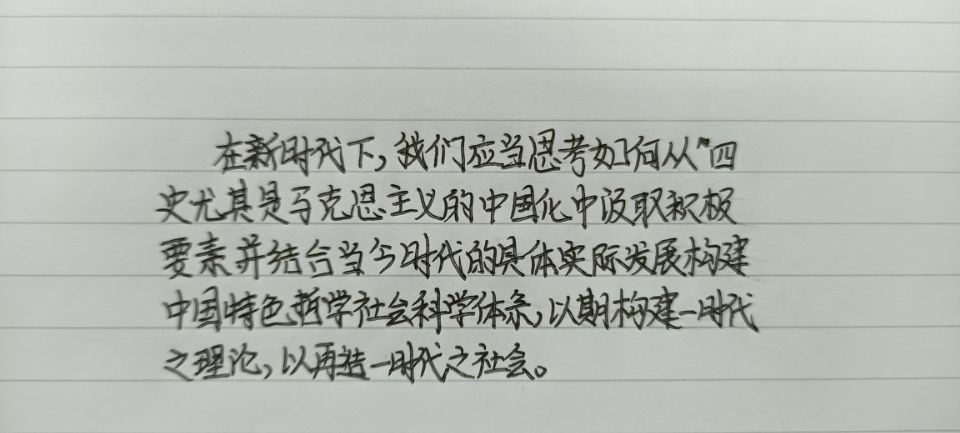 在新时代下,我们应当思考如何从"四
史尤其是马克思主义的中国化中汲取积极
要素并结合当今时代的具体实际发展构建
中国特色哲学社会科学体系,以期构建一时代
之理论,以再造一时代之社会。